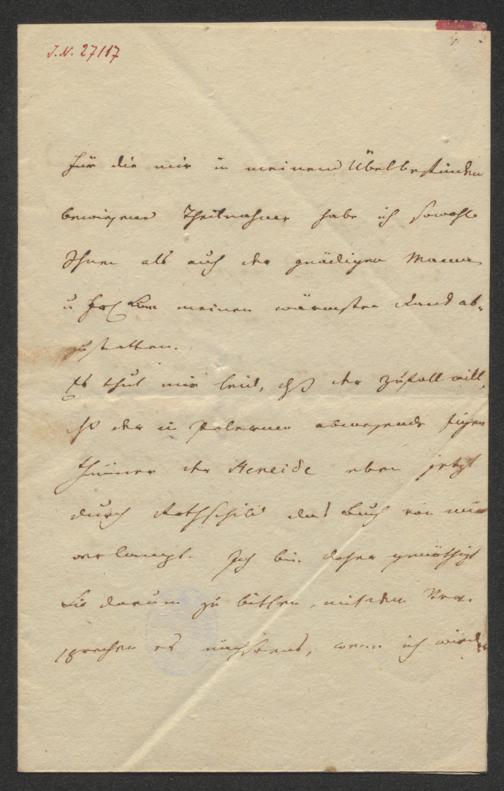 I.N. 27117
für die mir in meinem Übelbefinden
bewiesene Theilnahme habe ich sowohl
Ihnen als auch der gnädigen Mama
u meinen wärmsten Dank ab-
zustatten.
Es thut mir leid, daß der Zufall will,
daß der in Palermo abwesende Eigen
thümer der Aeneide eben jetzt
durch Rothschild das Buch von mir
verlangt. Ich bin daher genöthigt
Sie darum zu bitten, mit dem Ver-
sprechen es nächstens, wenn ich wieder